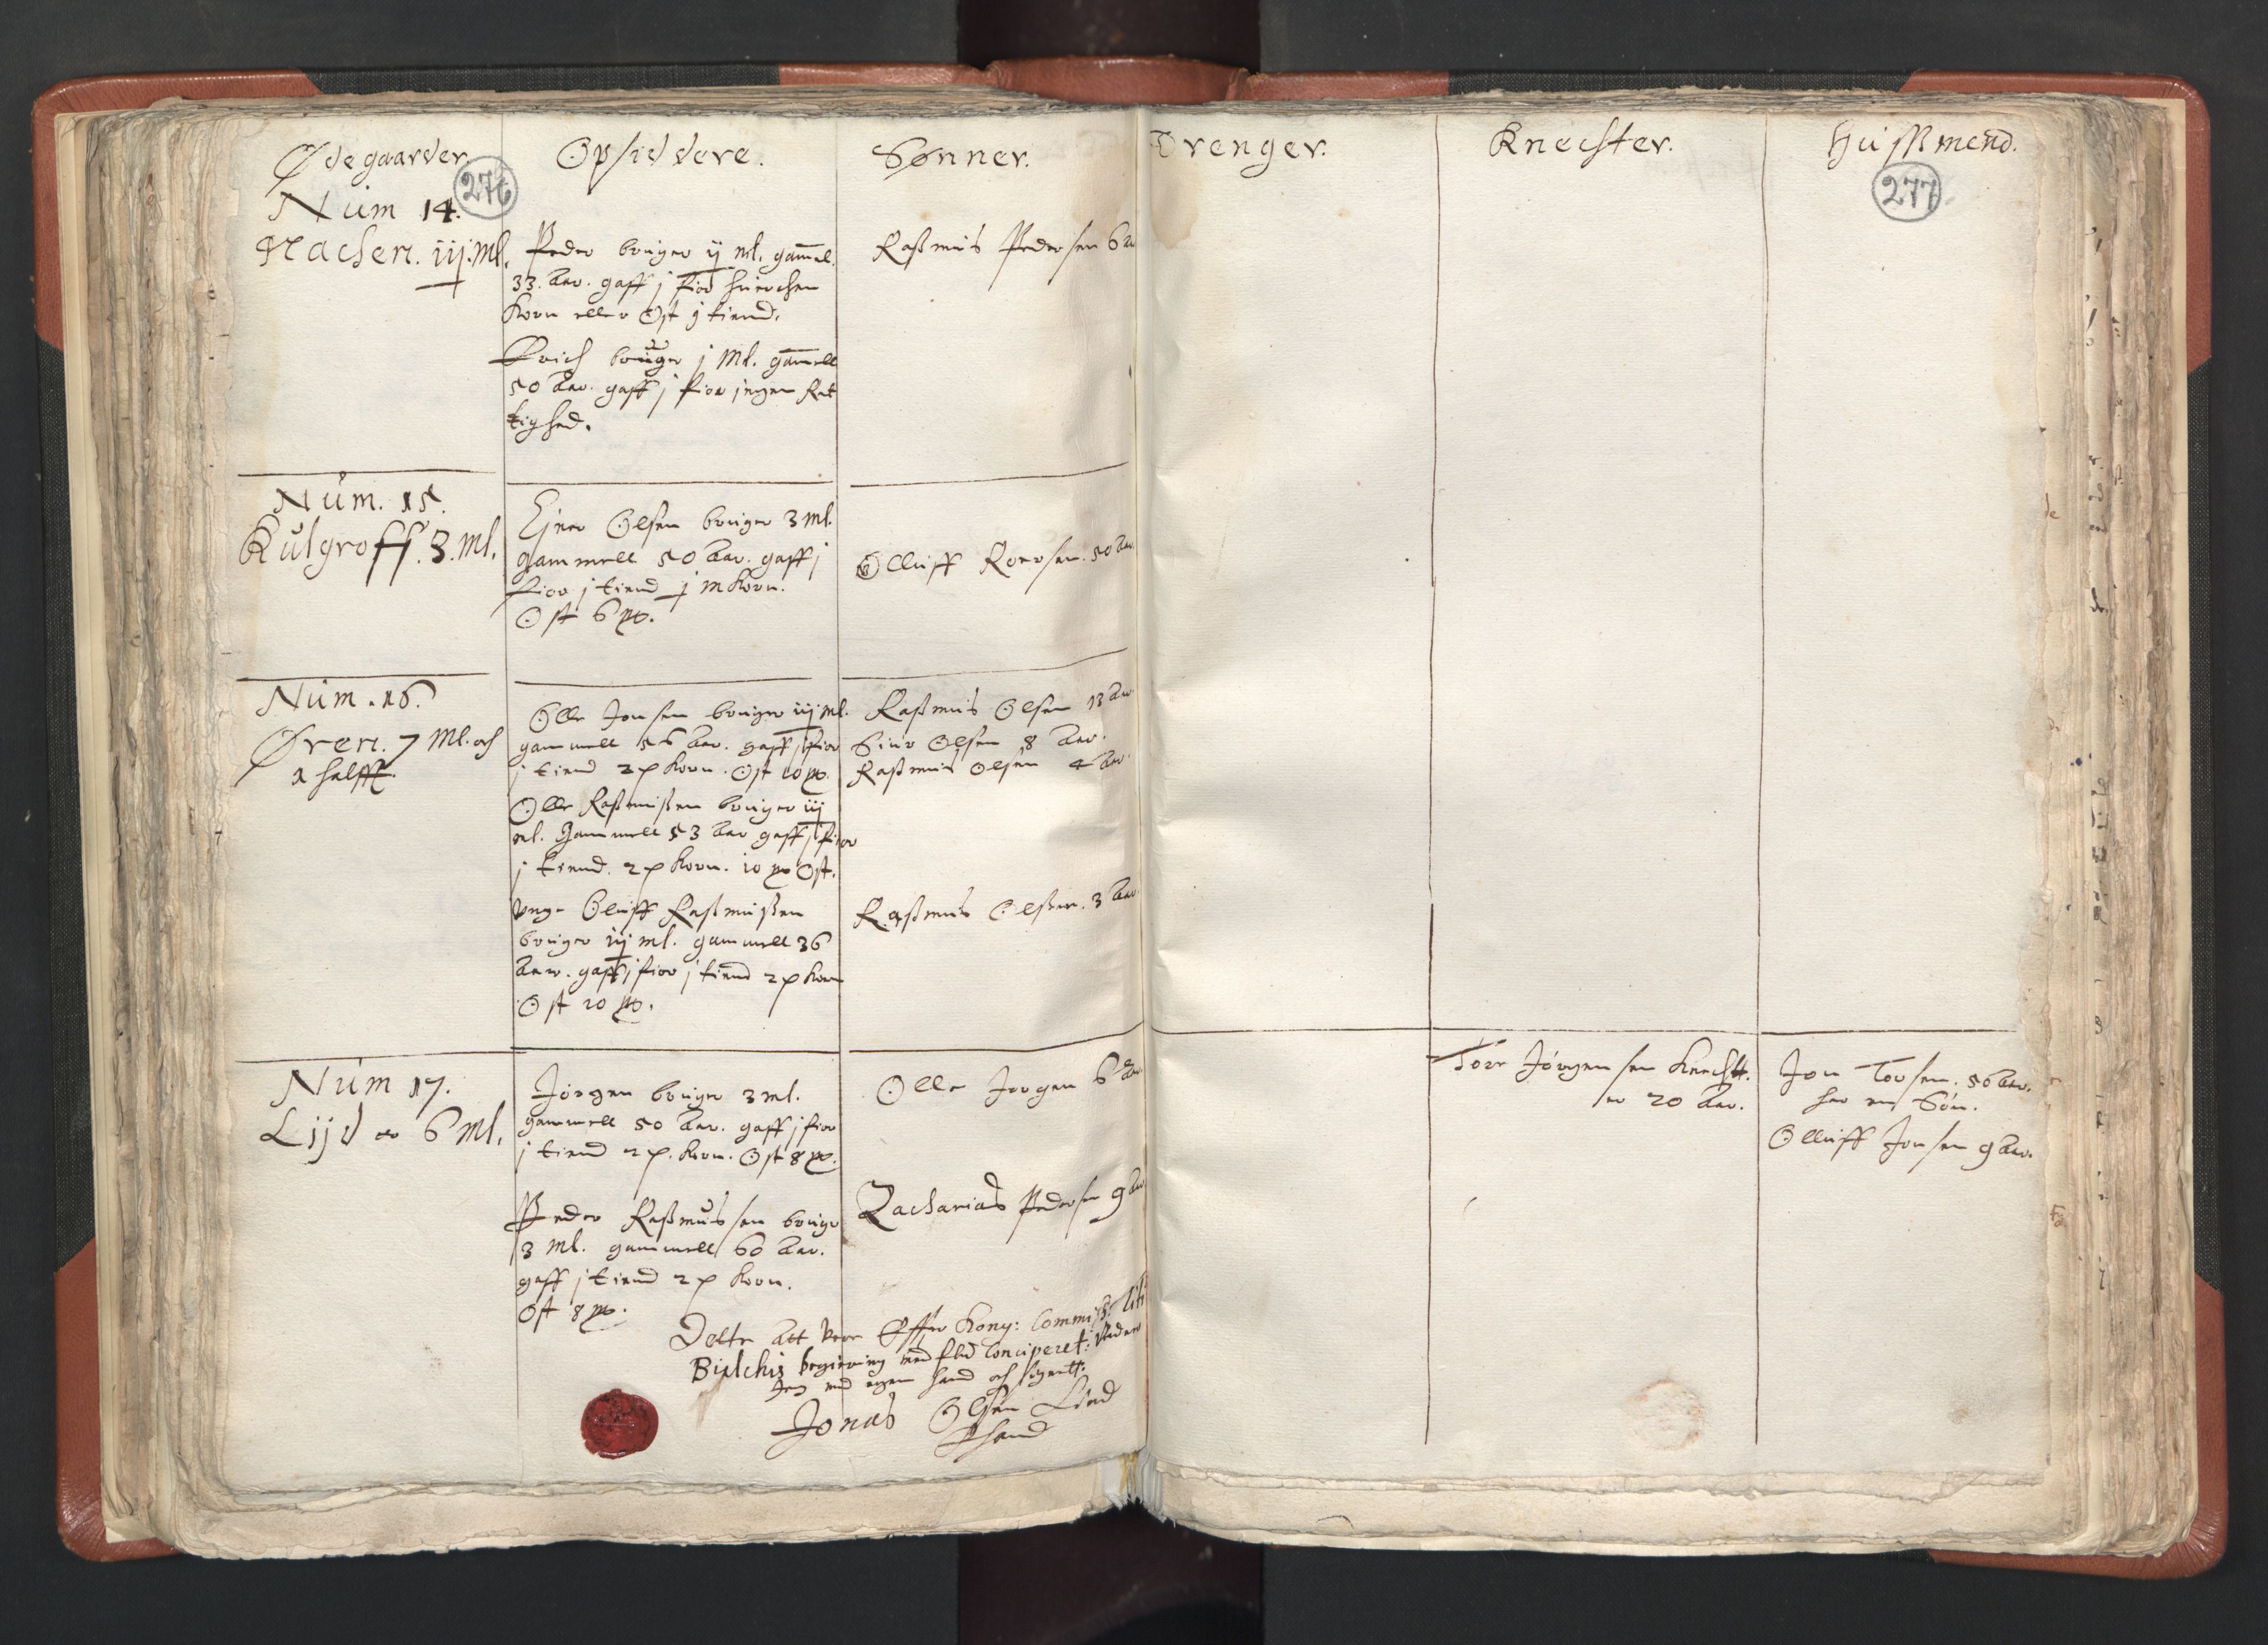 Ødegaarder.
Opsiddere.
Sønner.
Drenger.
Knechter.
Hussmend.
276
277
Num 14.
Nachen. iij. Ml.
Peder bruger ij ml. gamel
33. Aar. gaff j fior huerchen
Korn eller Ost j tiend.
Erich bruger j Ml. gamell
50 Aar. gaff j fior jngen Ret
tighed.
Rasmus Pedersen 6 a
Num. 15.
Kulgroff. 3. Ml.
Ejner Olsen bruger 3 ml.
gammell 50 Aar. gaff j
fior j tiend j m Korn.
Ost 6 p.
Olluff Roersen. 50 Aar
Num. 16.
Øren. 7 Ml. och
1 halff.
Olle Jonsen bruger iij ml.
gammell 56 Aar. gaff j fior
j tiend 2 p Korn. Ost 10 p.
Olle Rasmussen bruger iij
ml. Gammell 53 Aar gaff j fior
j tiend. 2 p Korn. 10 p Ost.
Unge Oluff Rasmussen
bruger iij ml. gammell 36
Aar. gaff j fior j tiend 2 p Korn
Ost 10 p.
Rasmus Olsen 13 Aar
Siur Olsen 8 Aar.
Rasmus Olsen 4 Aar
Rasmus Olssen. 3 Aar
Num 17.
Lijd er 6 Ml.
Jørgen bruger 3 ml.
gammell 50 Aar. gaff j fior
j tiend 2 p. Korn. Ost 8 p.
Peder Rasmussen bruger
3 Ml. gammell 60 Aar.
gaff j tiend 2 p Korn.
Ost 8 p.
Olle Jørgen 6 Aar
Zacharias Pedersen 9 Aar
Tore Jørgensen Knecht.
er 20 Aar.
Jon Torsen. 56 Aar.
har en Søn.
Olluff Jonsen 9 Aar.
Dette att vere Effter Kong: Commiss:
Bielchis begiering med flid Conciperet:
Jeg med egen hand och signett.
Jonas Olsen Lind
Ehand